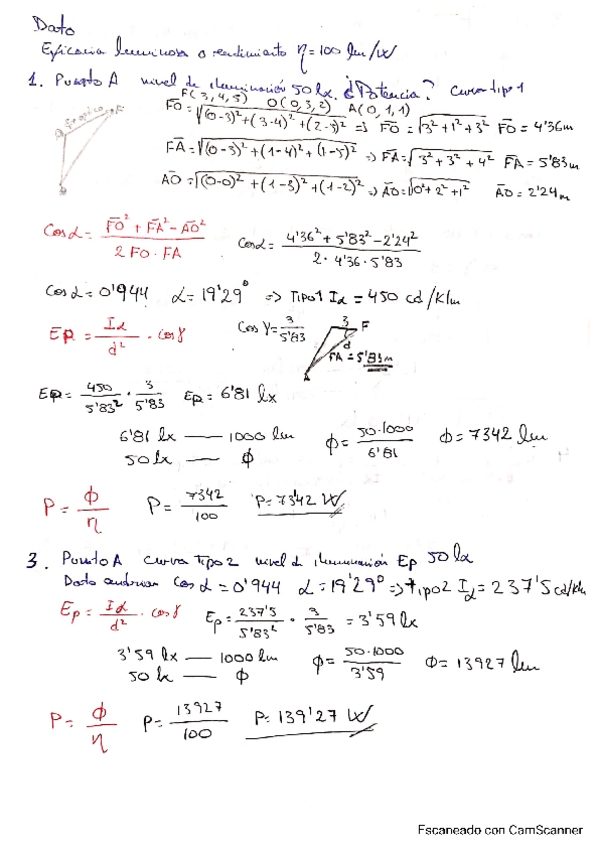 Dato
Eficacia luminosa o rendimiento η = 100 lm/W
1. Punto A nivel de iluminación 50 lx. ¿Potencia? Curva tipo 1
F(3,4,5) O(0,3,2) A(0,1,1)
F̄O = √(0-3)² + (3-4)² + (2-3)² => F̄O = √3² + 1² + 3² F̄O = 4'36m
F̄A = √(0-3)² + (1-4)² + (1-5)² => F̄A = √3² + 3² + 4² F̄A = 5'83m
ĀO = √(0-0)² + (1-3)² + (1-2)² => ĀO = √0² + 2² + 1² ĀO = 2'24m
Cosα = F̄O² + F̄A² - ĀO² / 2 FO · FA Cosα = 4'36² + 5'83² - 2'24² / 2 · 4'36 · 5'83
Cosα = 0'944 α = 19'29° => Tipo 1 Iα = 450 cd/Klm
EP = Iα / d² · cosγ Cosγ = 3 / 5'83
3 F
d
FA = 5'83m
A
EP = 450 / 5'83² · 3 / 5'83 EP = 6'81 lx
6'81 lx — 1000 lm
50 lx — ϕ
ϕ = 50·1000 / 6'81 ϕ = 7342 lm
P = ϕ / η P = 7342 / 100 P = 73'42 W
3. Punto A curva tipo 2 nivel de iluminación Ep 50 lx
Cosα = 0'944 α = 19'29° => tipo 2 Iα = 237'5 cd/Klm
Ep = Iα / d² · cosγ Ep = 237'5 / 5'83² · 3 / 5'83 = 3'59 lx
3'59 lx — 1000 lm
50 lx — ϕ
ϕ = 50·1000 / 3'59 ϕ = 13927 lm
P = ϕ / η P = 13927 / 100 P = 139'27 W
Escaneado con CamScanner